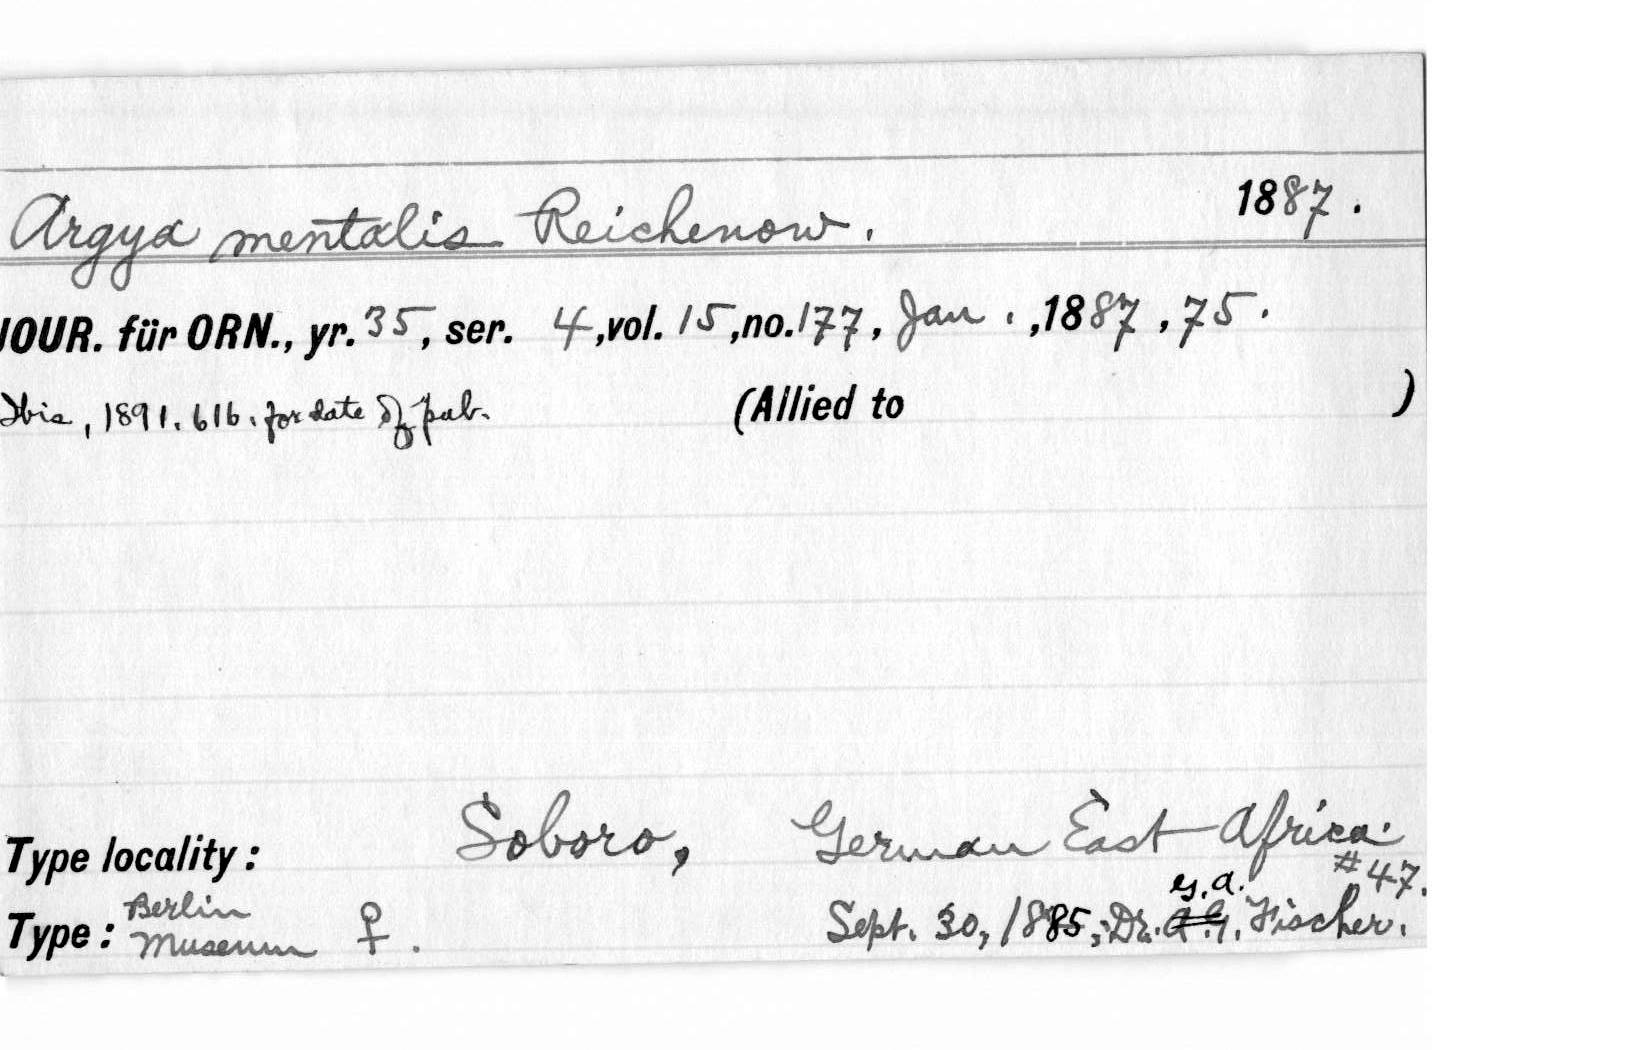 Argya mentalis Reichenow. 1887.
JOUR. für ORN., yr. 35, ser. 4, vol. 15, no. 177, Jan., 1887, 75.
Ibis, 1891, 616, for date of pub. (Allied to )
Type locality: Soboro, German East Africa.
#47.
G.A.
Type: Berlin Museum ♀. Sept. 30, 1885, Dr. A.G. Fischer.